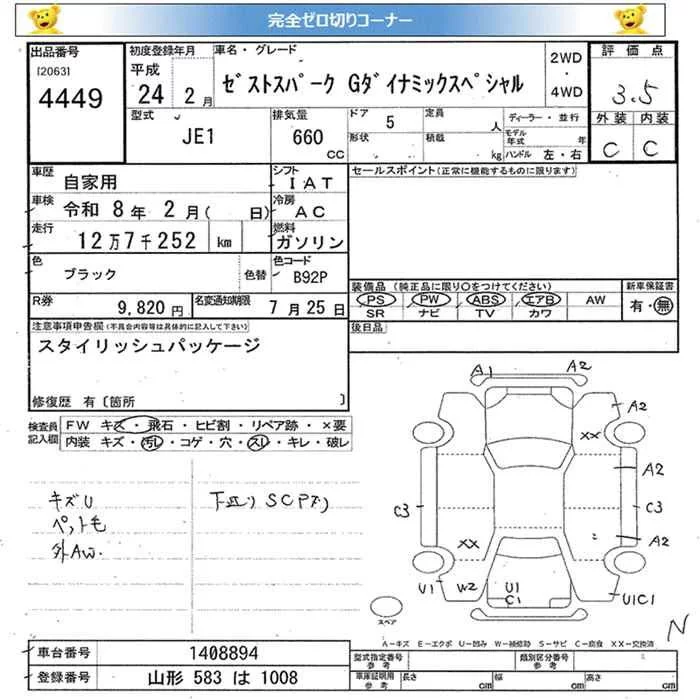 完全ゼロ切りコーナー
出品番号 初度登録年月 車名・グレード 2WD・4WD 評価点
[2063] 平成 24年 2月 ゼストスパーク Gダイナミックスペシャル 3.5
4449 型式 排気量 ドア 5 定員 人 ディーラー・並行 外装 内装
JE1 660 CC 形状 積載 kg モデル年式 年 C C
ハンドル 左・右
車歴 自家用 シフト IAT セールスポイント(正常に機能するものに限ります)
車検 令和 8年 2月( 日) 冷房 AC
走行 12万7千252 km 燃料 ガソリン
色 ブラック 色替 色コード B92P
装備品 (純正品に限り○をつけてください) 新車保証書
R券 9,820円 名変通知期限 7月25日 PS PW ABS エアB AW 有・無
SR ナビ TV カワ
注意事項申告欄(不具合内容等は具体的に記入して下さい) 後日品
スタイリッシュパッケージ
修復歴 有〔箇所 〕
検査員記入欄 FW キズ・飛石・ヒビ割・リペア跡・×要
内装 キズ・汚レ・コゲ・穴・スレ・キレ・破レ
A1 A2
A2
XX
A2
C3 C3
A2
XX
U1 W2 U1 C1 U1C1
キズU 下廻り SCPズリ
ペット毛
外AW.
スペア
N
A-キズ E-エクボ U-凹み W-補修跡 S-サビ C-腐食 XX-交換済
車台番号 1408894 型式指定番号 参考 類別区分番号 参考
登録番号 山形 583 は 1008 車庫証明用 参考 長さ cm 幅 cm 高さ cm